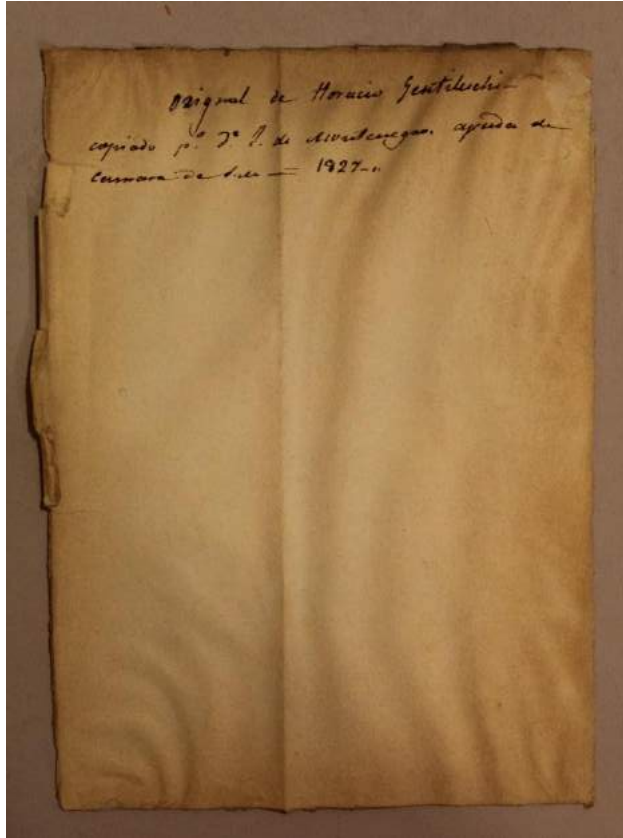 Original de Horacio Gentileschi
copiado p.r de Montenegro. ayuda de
Camara de S.M. — 1827